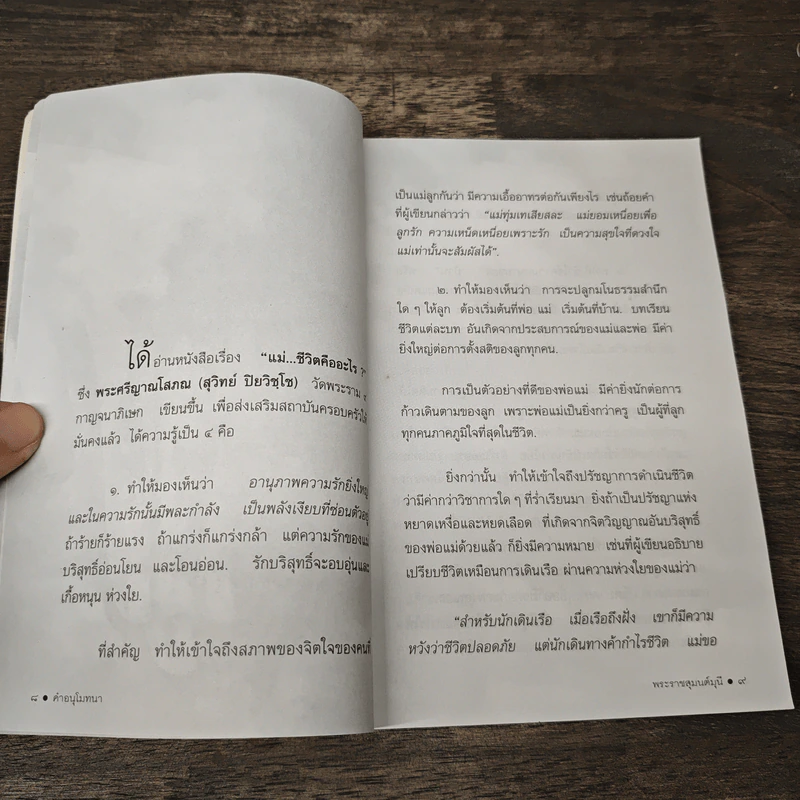 ได้อ่านหนังสือเรื่อง "แม่...ชีวิตคืออะไร ?"
ซึ่ง พระศรีญาณโสภณ (สุวิทย์ ปิยวิชฺโช) วัดพระราม ๙
กาญจนาภิเษก เขียนขึ้น เพื่อส่งเสริมสถาบันครอบครัวให้
มั่นคงแล้ว ได้ความรู้เป็น ๔ คือ
๑. ทำให้มองเห็นว่า อานุภาพความรักยิ่งใหญ่
และในความรักนั้นมีพละกำลัง เป็นพลังเงียบที่ซ่อนตัวอยู่
ถ้าร้ายก็ร้ายแรง ถ้าแกร่งก็แกร่งกล้า แต่ความรักของแม่
บริสุทธิ์อ่อนโยน และโอนอ่อน. รักบริสุทธิ์จะอบอุ่นและ
เกื้อหนุน ห่วงใย.
ที่สำคัญ ทำให้เข้าใจถึงสภาพของจิตใจของคนที่
๘ ● คำอนุโมทนา
เป็นแม่ลูกกันว่า มีความเอื้ออาทรต่อกันเพียงไร เช่นถ้อยคำ
ที่ผู้เขียนกล่าวว่า "แม่ทุ่มเทเสียสละ แม่ยอมเหนื่อยเพื่อ
ลูกรัก ความเหน็ดเหนื่อยเพราะรัก เป็นความสุขใจที่ดวงใจ
แม่เท่านั้นจะสัมผัสได้".
๒. ทำให้มองเห็นว่า การจะปลูกมโนธรรมสำนึก
ใด ๆ ให้ลูก ต้องเริ่มต้นที่พ่อ แม่ เริ่มต้นที่บ้าน. บทเรียน
ชีวิตแต่ละบท อันเกิดจากประสบการณ์ของแม่และพ่อ มีค่า
ยิ่งใหญ่ต่อการตั้งสติของลูกทุกคน.
การเป็นตัวอย่างที่ดีของพ่อแม่ มีค่ายิ่งนักต่อการ
ก้าวเดินตามของลูก เพราะพ่อแม่เป็นยิ่งกว่าครู เป็นผู้ที่ลูก
ทุกคนภาคภูมิใจที่สุดในชีวิต.
ยิ่งกว่านั้น ทำให้เข้าใจถึงปรัชญาการดำเนินชีวิต
ว่ามีค่ากว่าวิชาการใด ๆ ที่ร่ำเรียนมา ยิ่งถ้าเป็นปรัชญาแห่ง
หยาดเหงื่อและหยดเลือด ที่เกิดจากจิตวิญญาณอันบริสุทธิ์
ของพ่อแม่ด้วยแล้ว ก็ยิ่งมีความหมาย เช่นที่ผู้เขียนอธิบาย
เปรียบชีวิตเหมือนการเดินเรือ ผ่านความห่วงใยของแม่ว่า
"สำหรับนักเดินเรือ เมื่อเรือถึงฝั่ง เขาก็มีความ
หวังว่าชีวิตปลอดภัย แต่นักเดินทางค้ากำไรชีวิต แม่ขอ
พระราชสุมนต์มุนี ● ๙